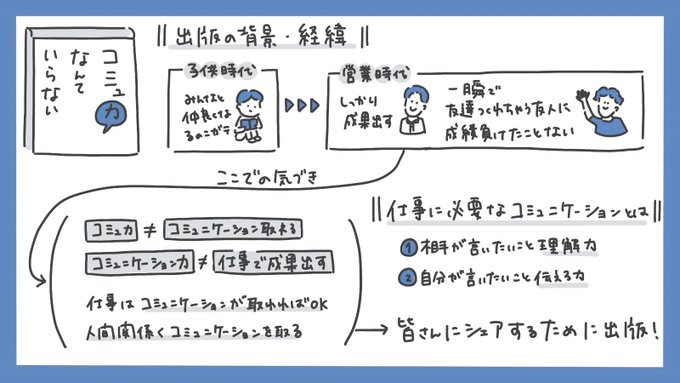 コミュ力
なんて
いらない
出版の背景・経緯
子供時代
みんなと
仲良くなる
るのニガテ
営業時代
しっかり
成果出す
一瞬で
友達つくれちゃう友人に
成績負けたことない
ここでの気づき
コミュ力 ≠ コミュニケーション取れる
コミュニケーション力 ≠ 仕事で成果出す
仕事はコミュニケーションが取れればOK
人間関係くコミュニケーションを取る
仕事に必要なコミュニケーションとは
1 相手が言いたいこと理解力
2 自分が言いたいこと伝える力
→ 皆さんにシェアするために出版!